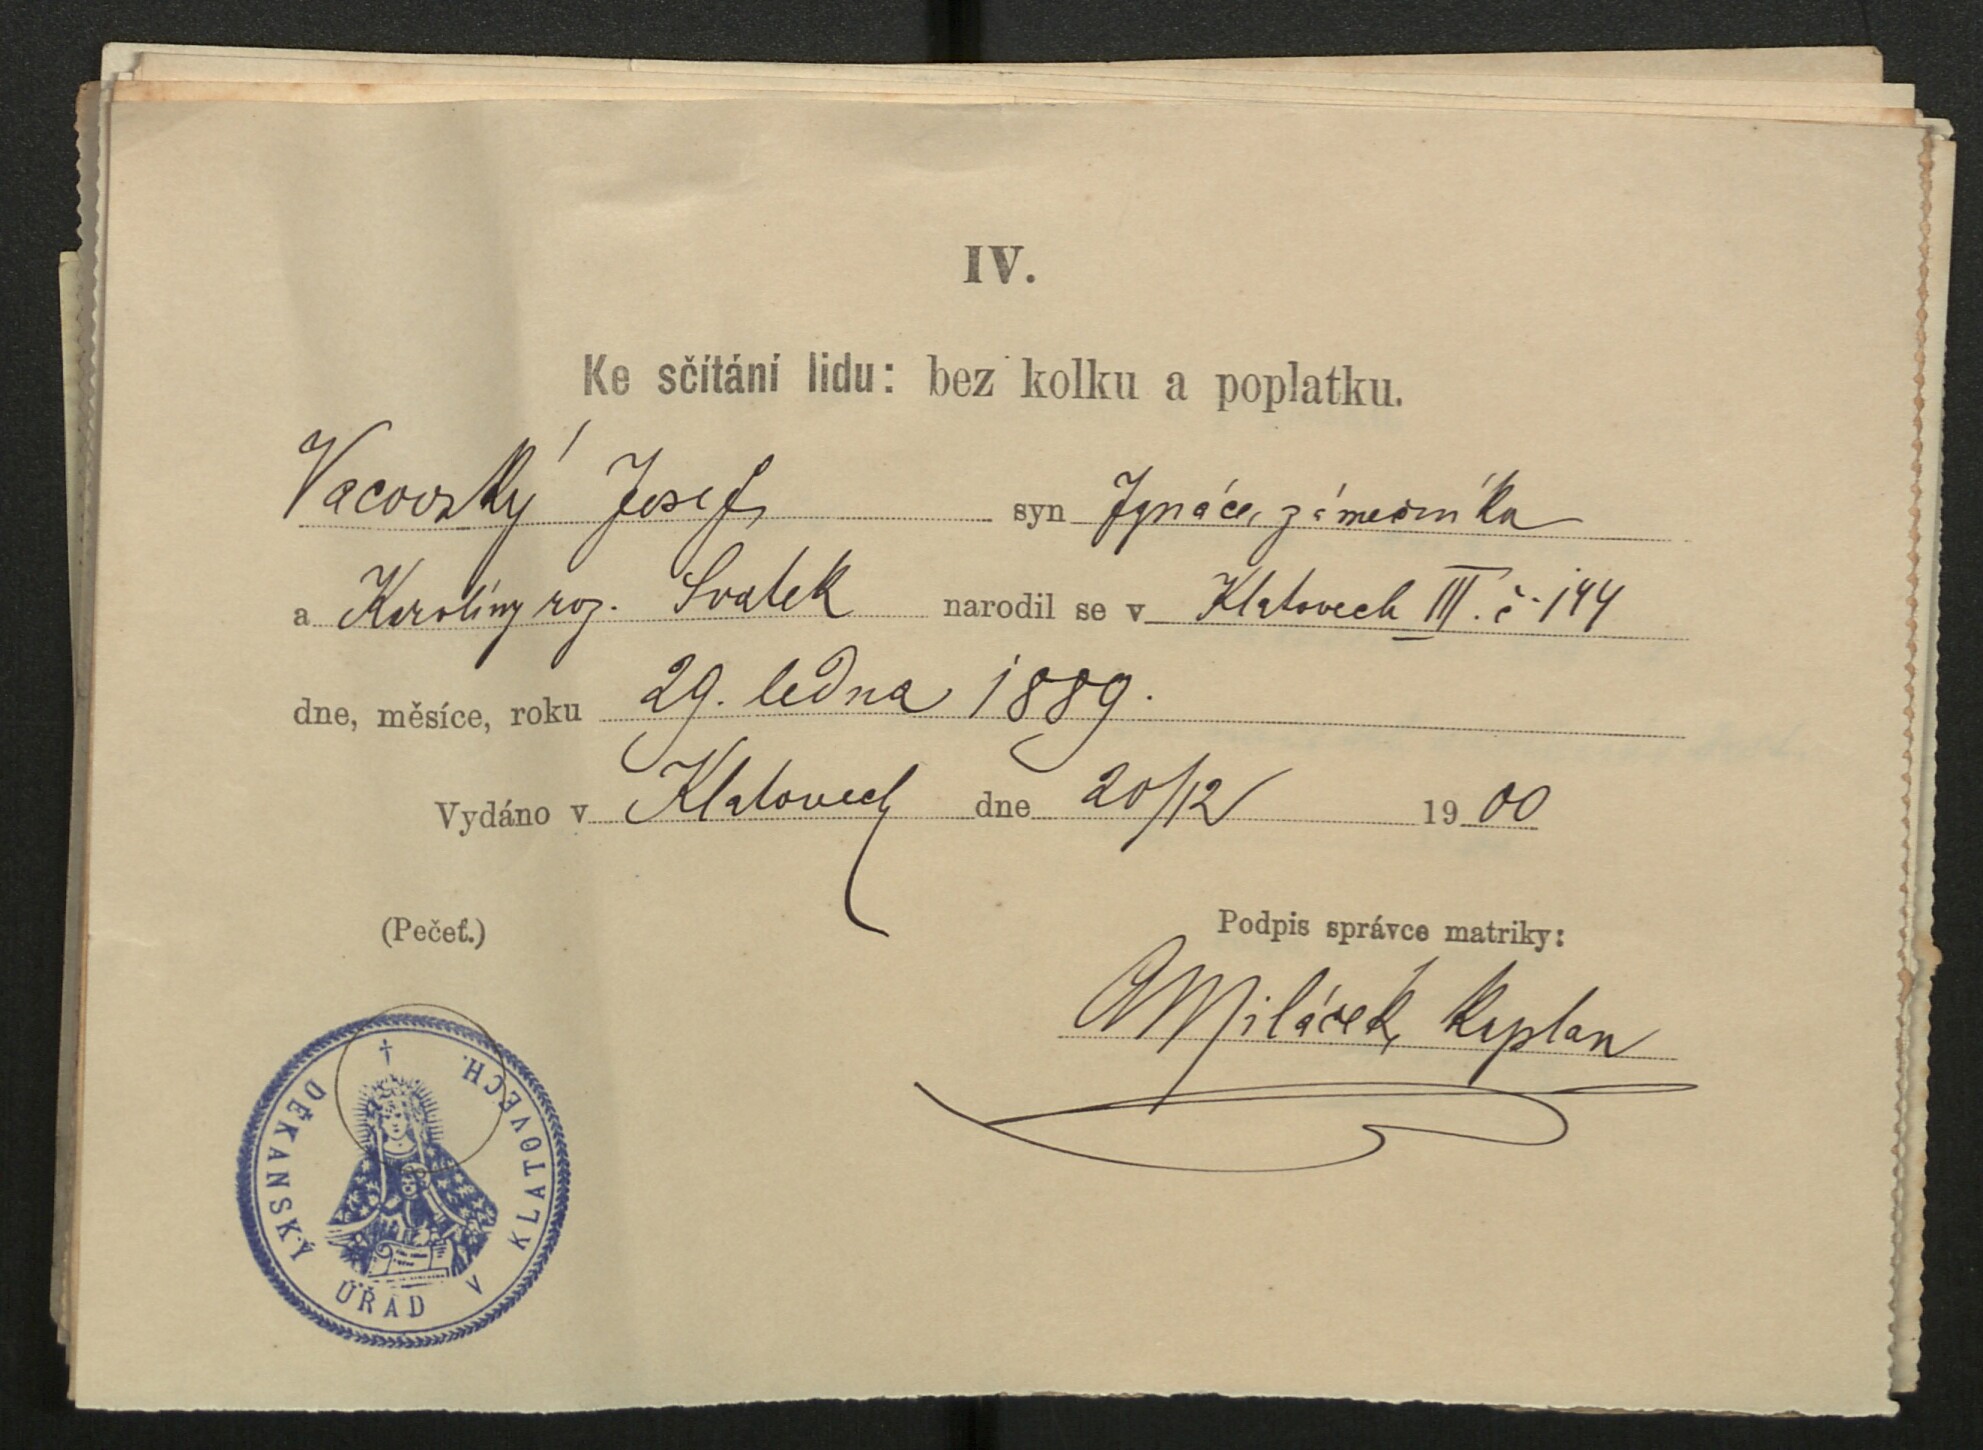 IV.
Ke sčítání lidu: bez kolku a poplatku.
Vacovský Josef, syn Ignáce, zámečníka
a Karolíny roz. Svatek narodil se v Klatovech III. č. 144
dne, měsíce, roku 29. ledna 1889.
Vydáno v Klatovech dne 20/12 1900
(Pečeť.) Podpis správce matriky:
AMiláček, kaplan
DĚKANSKÝ ÚŘAD V KLATOVECH.